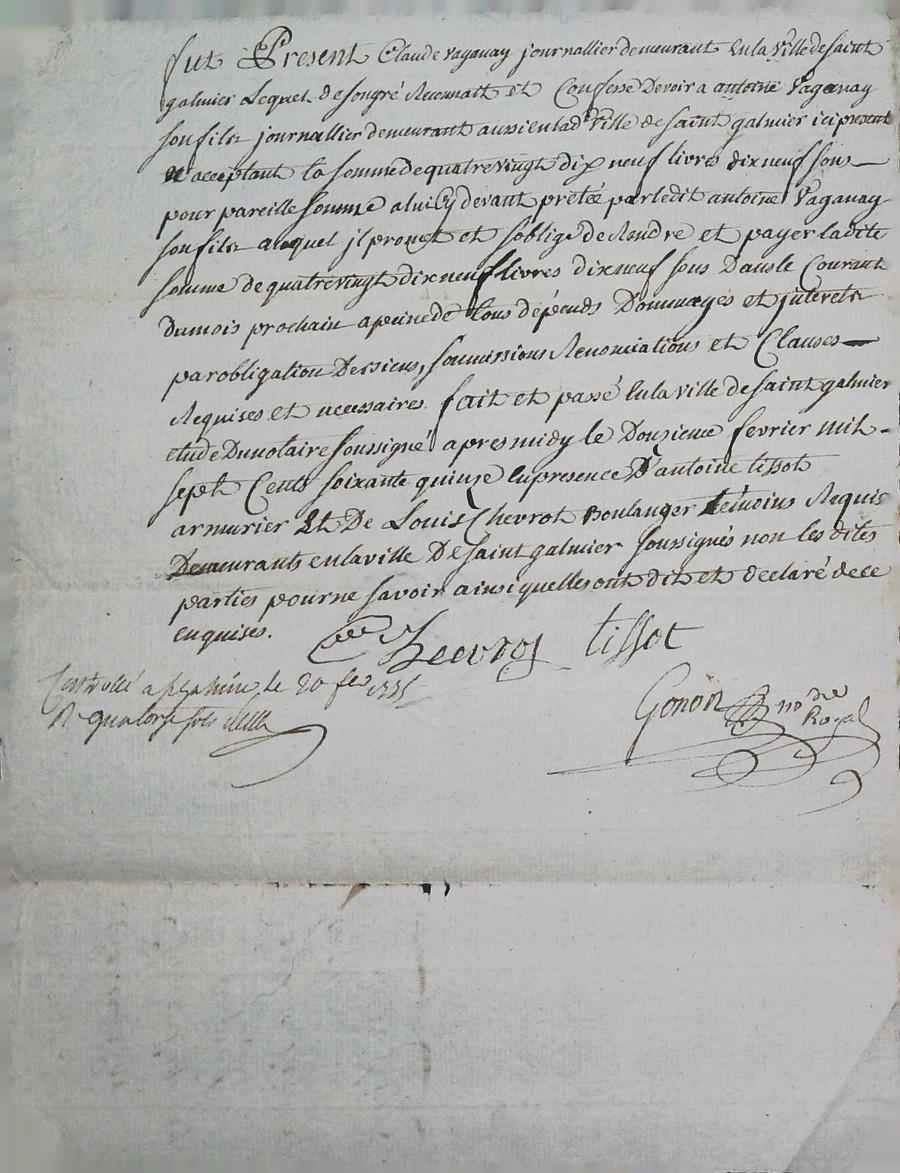 fut Present Claude vaganay journallier demeurant En la Ville de saint
galmier Lequel de son gré Reconnait et Confesse Devoir a antoine Vaganay
son fils journallier demeurant aussi en lad. Ville de saint galmier ici present
et acceptant la somme de quatre vingt dix neuf livres dix neuf sous
pour pareille somme a lui Cy devant prêtée par ledit antoine Vaganay
son fils auquel jl promet et soblige de Rendre et payer ladite
somme de quatre vingt dix neuf livres dix neuf sous Dans le Courant
Du mois prochain a peine de tous dépends Dommages et jnterets
par obligation De ses biens, soumissions Renonciations et Clauses
Requises et necessaires. fait et passé En la ville de saint galmier
etude Du notaire soussigné apres midy le Douzieme fevrier mil
sept Cents soixante quinze en presence D'antoine tissot
armurier Et De Louis Chevrot Boulanger témoins Requis
Demeurants en la ville De saint galmier soussignés non les dites
parties pour ne savoir ainsi quelles ont dit et declaré de ce
enquises.
Chevrot tissot
Controllé a St galmier le 20 fev 1775
R quatorze sols
Gonon no.re Royal